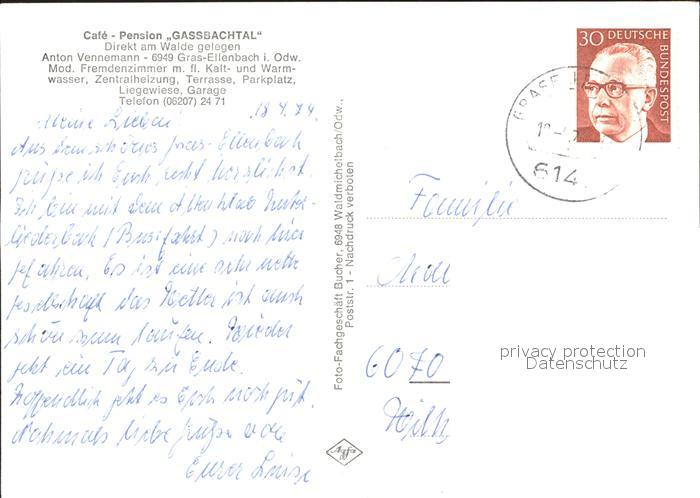 Café - Pension „GASSBACHTAL"
Direkt am Walde gelegen
Anton Vennemann - 6949 Gras-Ellenbach i. Odw.
Mod. Fremdenzimmer m. fl. Kalt- und Warm-
wasser, Zentralheizung, Terrasse, Parkplatz,
Liegewiese, Garage
Telefon (06207) 24 71
18.4.74
Meine Lieben!
Aus dem schönen Gras-Ellenbach
grüße ich Euch recht herzlichst.
Ich bin mit dem Altenclub Unter-
liederbach (Busfahrt) nach hier
gefahren. Es ist eine sehr nette
Gesellschaft das Wetter ist auch
schön zum laufen. Wieder
geht ein Tag zu Ende.
Hoffendlich geht es Euch noch gut.
Nochmals liebe Grüße von
Eurer Luise
Foto-Fachgeschäft Bucher, 6948 Waldmichelbach/Odw.,
Poststr. 1 - Nachdruck verboten
Agfa
30 DEUTSCHE
BUNDESPOST
GRASE
614
Familie
6070
privacy protection
Datenschutz